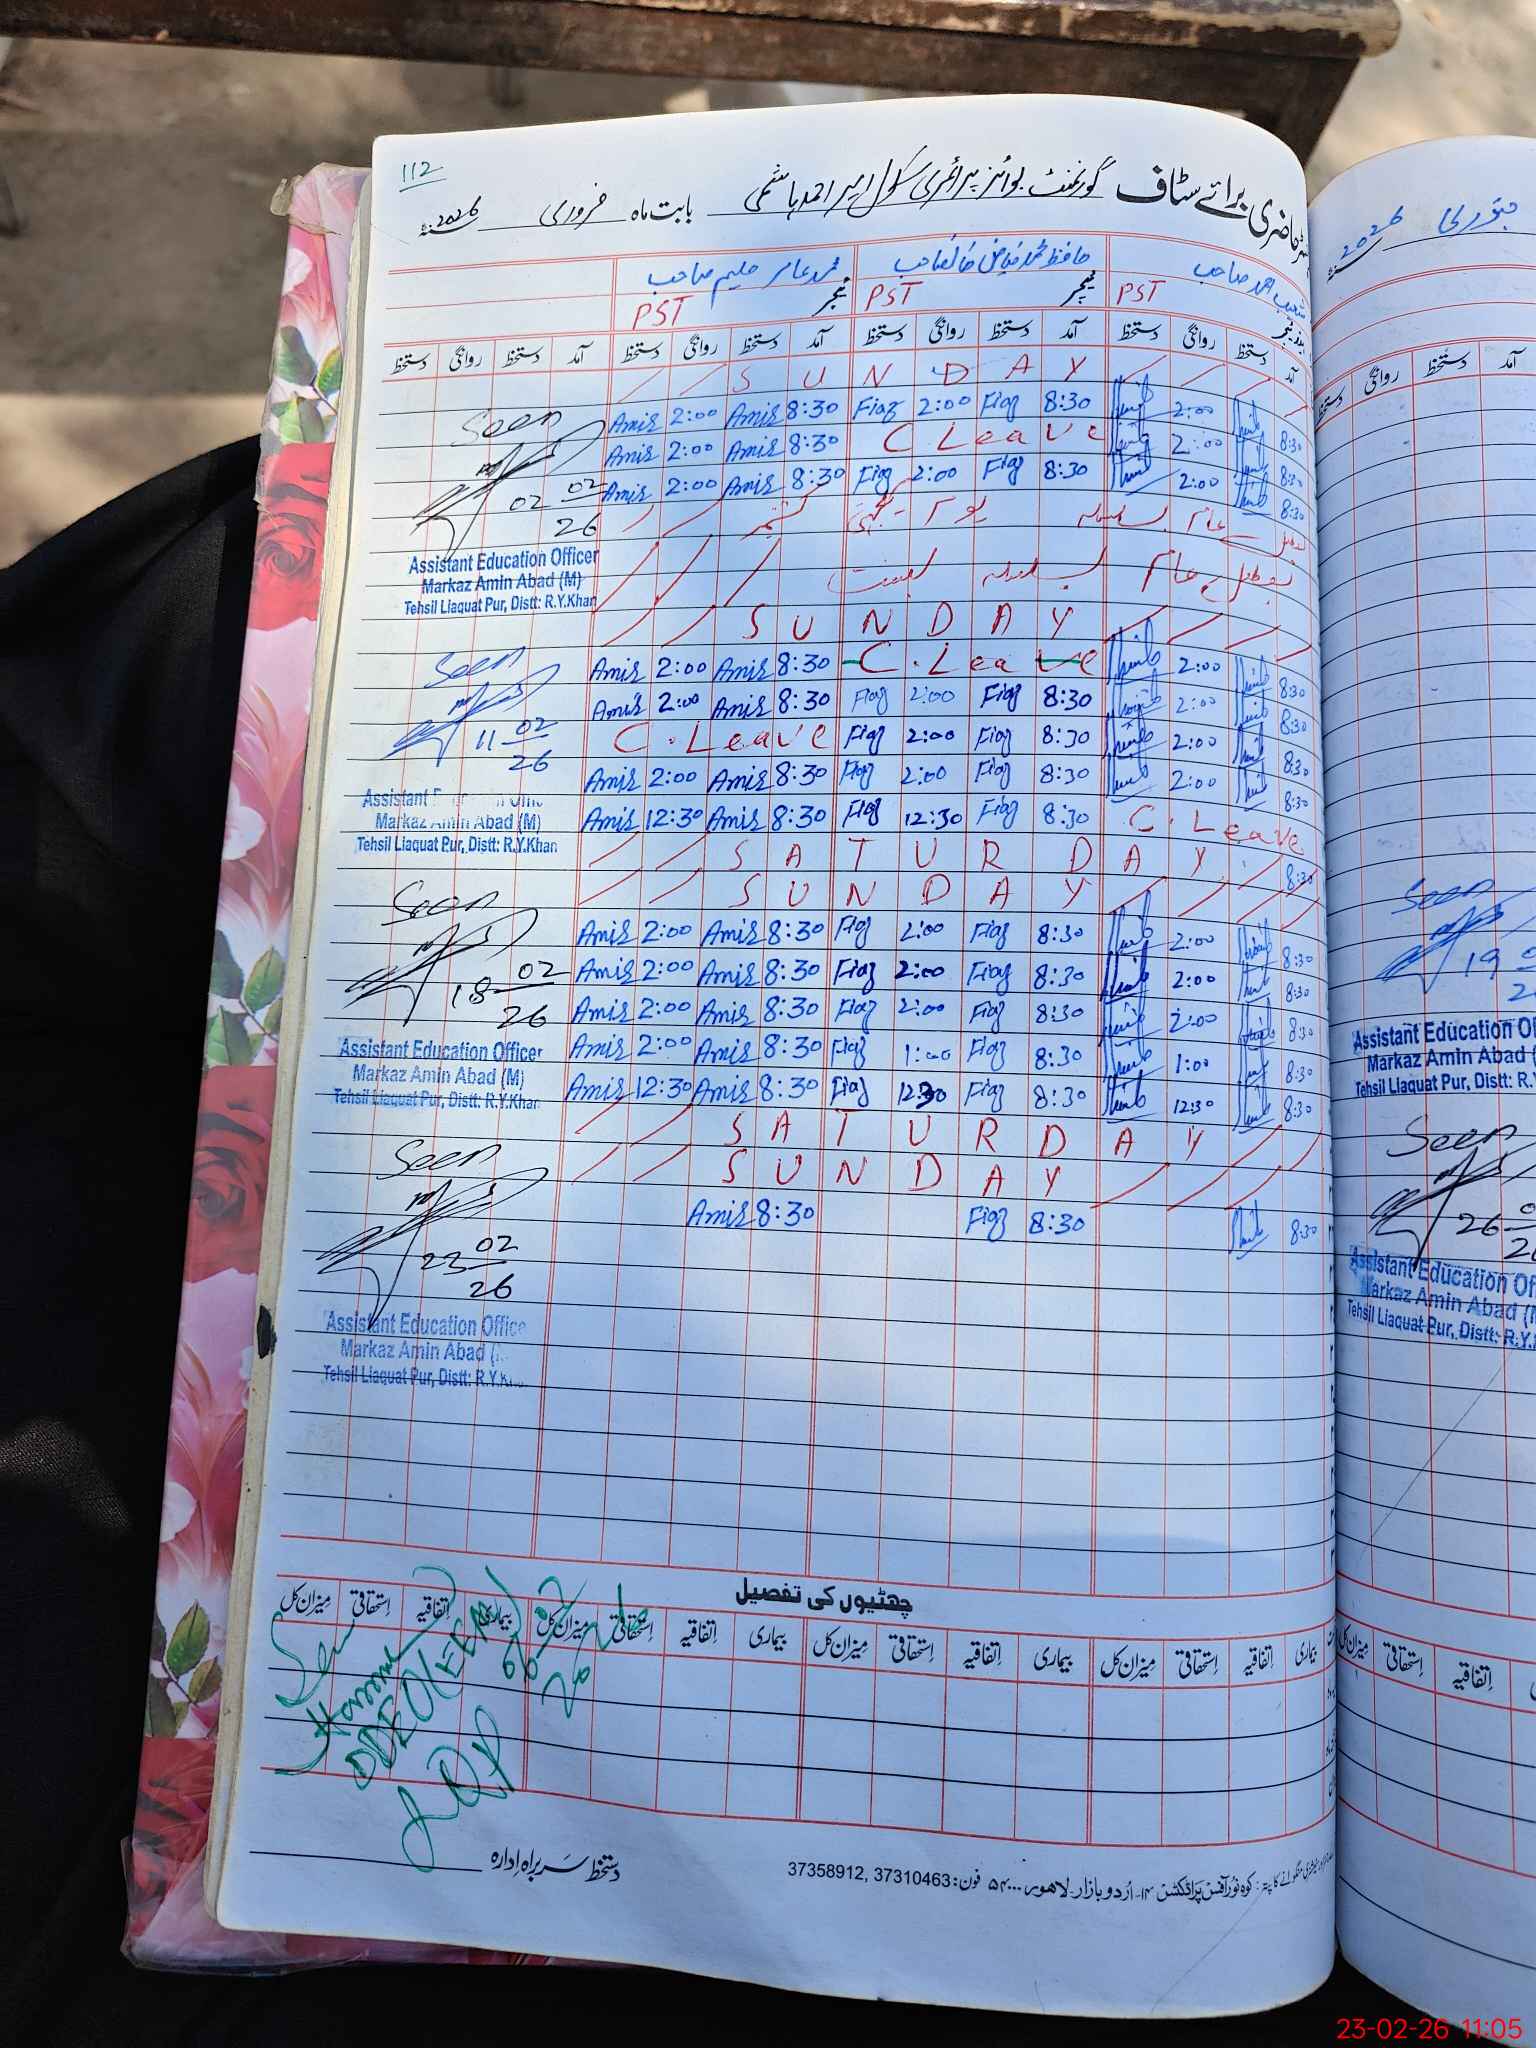 112
حاضری برائے سٹاف گورنمنٹ بوائز پرائمری سکول امیر احمد ہاشمی بابت ماہ فروری 2026
شعیب احمد صاحب حافظ محمد فیاض صاحب محمد عامر حلیم صاحب
PST ٹیچر PST ٹیچر PST
آمد دستخط روانگی دستخط آمد دستخط روانگی دستخط آمد دستخط روانگی دستخط آمد دستخط روانگی دستخط
S U N D A Y
Seen
Amir 2:00 Amir 8:30 Fiaz 2:00 Fiaz 8:30 2:00 8:30
Amir 2:00 Amir 8:30 C Leave 2:00 8:30
Amir 2:00 Amir 8:30 Fiaz 2:00 Fiaz 8:30 2:00 8:30
02 02
26
عام بسلسلہ یوم یکجہتی کشمیر
Assistant Education Officer
Markaz Amin Abad (M)
Tehsil Liaquat Pur, Distt: R.Y.Khan
عام بسلسلہ بسنت
S U N D A Y
Seen
Amir 2:00 Amir 8:30 C. Leave 2:00 8:30
Amir 2:00 Amir 8:30 Fiaz 2:00 Fiaz 8:30 2:00 8:30
11 02
26
C. Leave Fiaz 2:00 Fiaz 8:30 2:00 8:30
Amir 2:00 Amir 8:30 Fiaz 2:00 Fiaz 8:30 2:00 8:30
Amir 12:30 Amir 8:30 Fiaz 12:30 Fiaz 8:30 C. Leave
8:30
Assistant
Markaz Amin Abad (M)
Tehsil Liaquat Pur, Distt: R.Y.Khan
S A T U R D A Y
S U N D A Y
Seen
Amir 2:00 Amir 8:30 Fiaz 2:00 Fiaz 8:30 2:00 8:30
Amir 2:00 Amir 8:30 Fiaz 2:00 Fiaz 8:30 2:00 8:30
18 02
26
Amir 2:00 Amir 8:30 Fiaz 2:00 Fiaz 8:30 2:00 8:30
Amir 2:00 Amir 8:30 Fiaz 1:00 Fiaz 8:30 1:00 8:30
Amir 12:30 Amir 8:30 Fiaz 12:30 Fiaz 8:30 12:30 8:30
Assistant Education Officer
Markaz Amin Abad (M)
Tehsil Liaquat Pur, Distt: R.Y.Khan
S A T U R D A Y
S U N D A Y
Seen
Amir 8:30 Fiaz 8:30 8:30
23 02
26
Assistant Education Office
Markaz Amin Abad
Tehsil Liaquat Pur, Distt: R.Y.
چھٹیوں کی تفصیل
بیماری اتفاقیہ استحقاقی میزان کل بیماری اتفاقیہ استحقاقی میزان کل بیماری اتفاقیہ استحقاقی میزان کل بیماری اتفاقیہ استحقاقی میزان کل
DDEO
LQP
دستخط سربراہ ادارہ
کوہ نور آفس پراڈکٹس ۱۴- اُردو بازار- لاہور ۵۴۰۰۰ فون: 37358912, 37310463
جنوری 2026
آمد دستخط روانگی دستخط
Seen
19
Assistant Education
Markaz Amin Abad
Tehsil Liaquat Pur, Distt: R.Y.
Seen
26
Assistant Education
Markaz Amin Abad
Tehsil Liaquat Pur, Distt: R.Y.
میزان کل استحقاقی اتفاقیہ
23-02-26 11:05